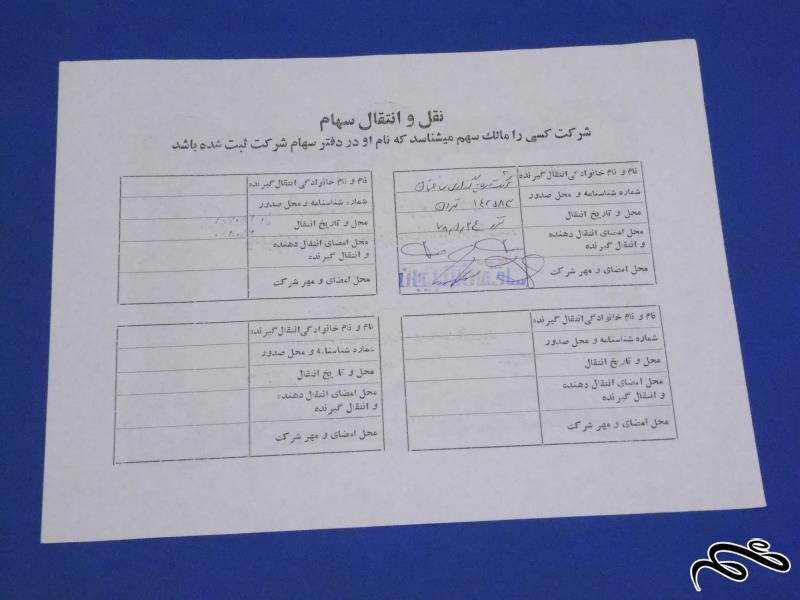 نقل و انتقال سهام
شرکت کسی را مالک سهم میشناسد که نام او در دفتر سهام شرکت ثبت شده باشد
نام و نام خانوادگی انتقال گیرنده
شماره شناسنامه و محل صدور
تهران
محل و تاریخ انتقال
محل امضای انتقال دهنده
و انتقال گیرنده
محل امضای و مهر شرکت
نام و نام خانوادگی انتقال گیرنده
شماره شناسنامه و محل صدور
محل و تاریخ انتقال
محل امضای انتقال دهنده
و انتقال گیرنده
محل امضای و مهر شرکت
نام و نام خانوادگی انتقال گیرنده
شماره شناسنامه و محل صدور
محل و تاریخ انتقال
محل امضای انتقال دهنده
و انتقال گیرنده
محل امضای و مهر شرکت
نام و نام خانوادگی انتقال گیرنده
شماره شناسنامه و محل صدور
محل و تاریخ انتقال
محل امضای انتقال دهنده
و انتقال گیرنده
محل امضای و مهر شرکت